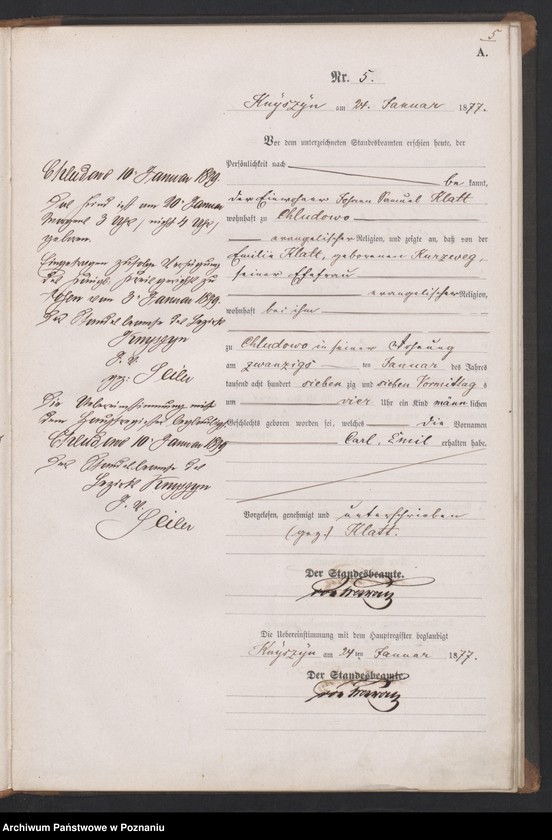 5
A.
Nr. 5.
Knyszyn am 24. Januar 1877.
Vor dem unterzeichneten Standesbeamten erschien heute, der
Persönlichkeit nach
be kannt,
der Einwohner Johann Samuel Klatt
wohnhaft zu Chludowo
evangelischer Religion, und zeigte an, daß von der
Emilie Klatt, geborenen Kurzweg,
seiner Ehefrau
evangelischer Religion,
wohnhaft bei ihm
zu Chludowo in seiner Wohnung
am zwanzigs ten Januar des Jahres
tausend acht hundert sieben zig und sieben Vormittags
um vier Uhr ein Kind männ lichen
Geschlechts geboren worden sei, welches die Vornamen
Carl, Emil erhalten habe.
Vorgelesen, genehmigt und unterschrieben
(gez:) Klatt.
Der Standesbeamte.
Die Uebereinstimmung mit dem Hauptregister beglaubigt
Knyszyn am 24 ten Januar 1877.
Der Standesbeamte.
Chludowo 10. Januar 1879.
Das Kind ist am 20 Januar
3 Uhr, nicht 4 Uhr,
geboren.
Eingetragen zufolge Verfügung
des Königl. Kreisgerichts zu
vom 3. Januar 1879.
Der Standesbeamte des Bezirks
Knyszyn
J. V.
gez. Seiler
Die Uebereinstimmung mit
dem Hauptregister beglaubigt
Chludowo 10. Januar 1879
Der Standesbeamte des
Bezirks Knyszyn
J. V.
Seiler
Archiwum Państwowe w Poznaniu